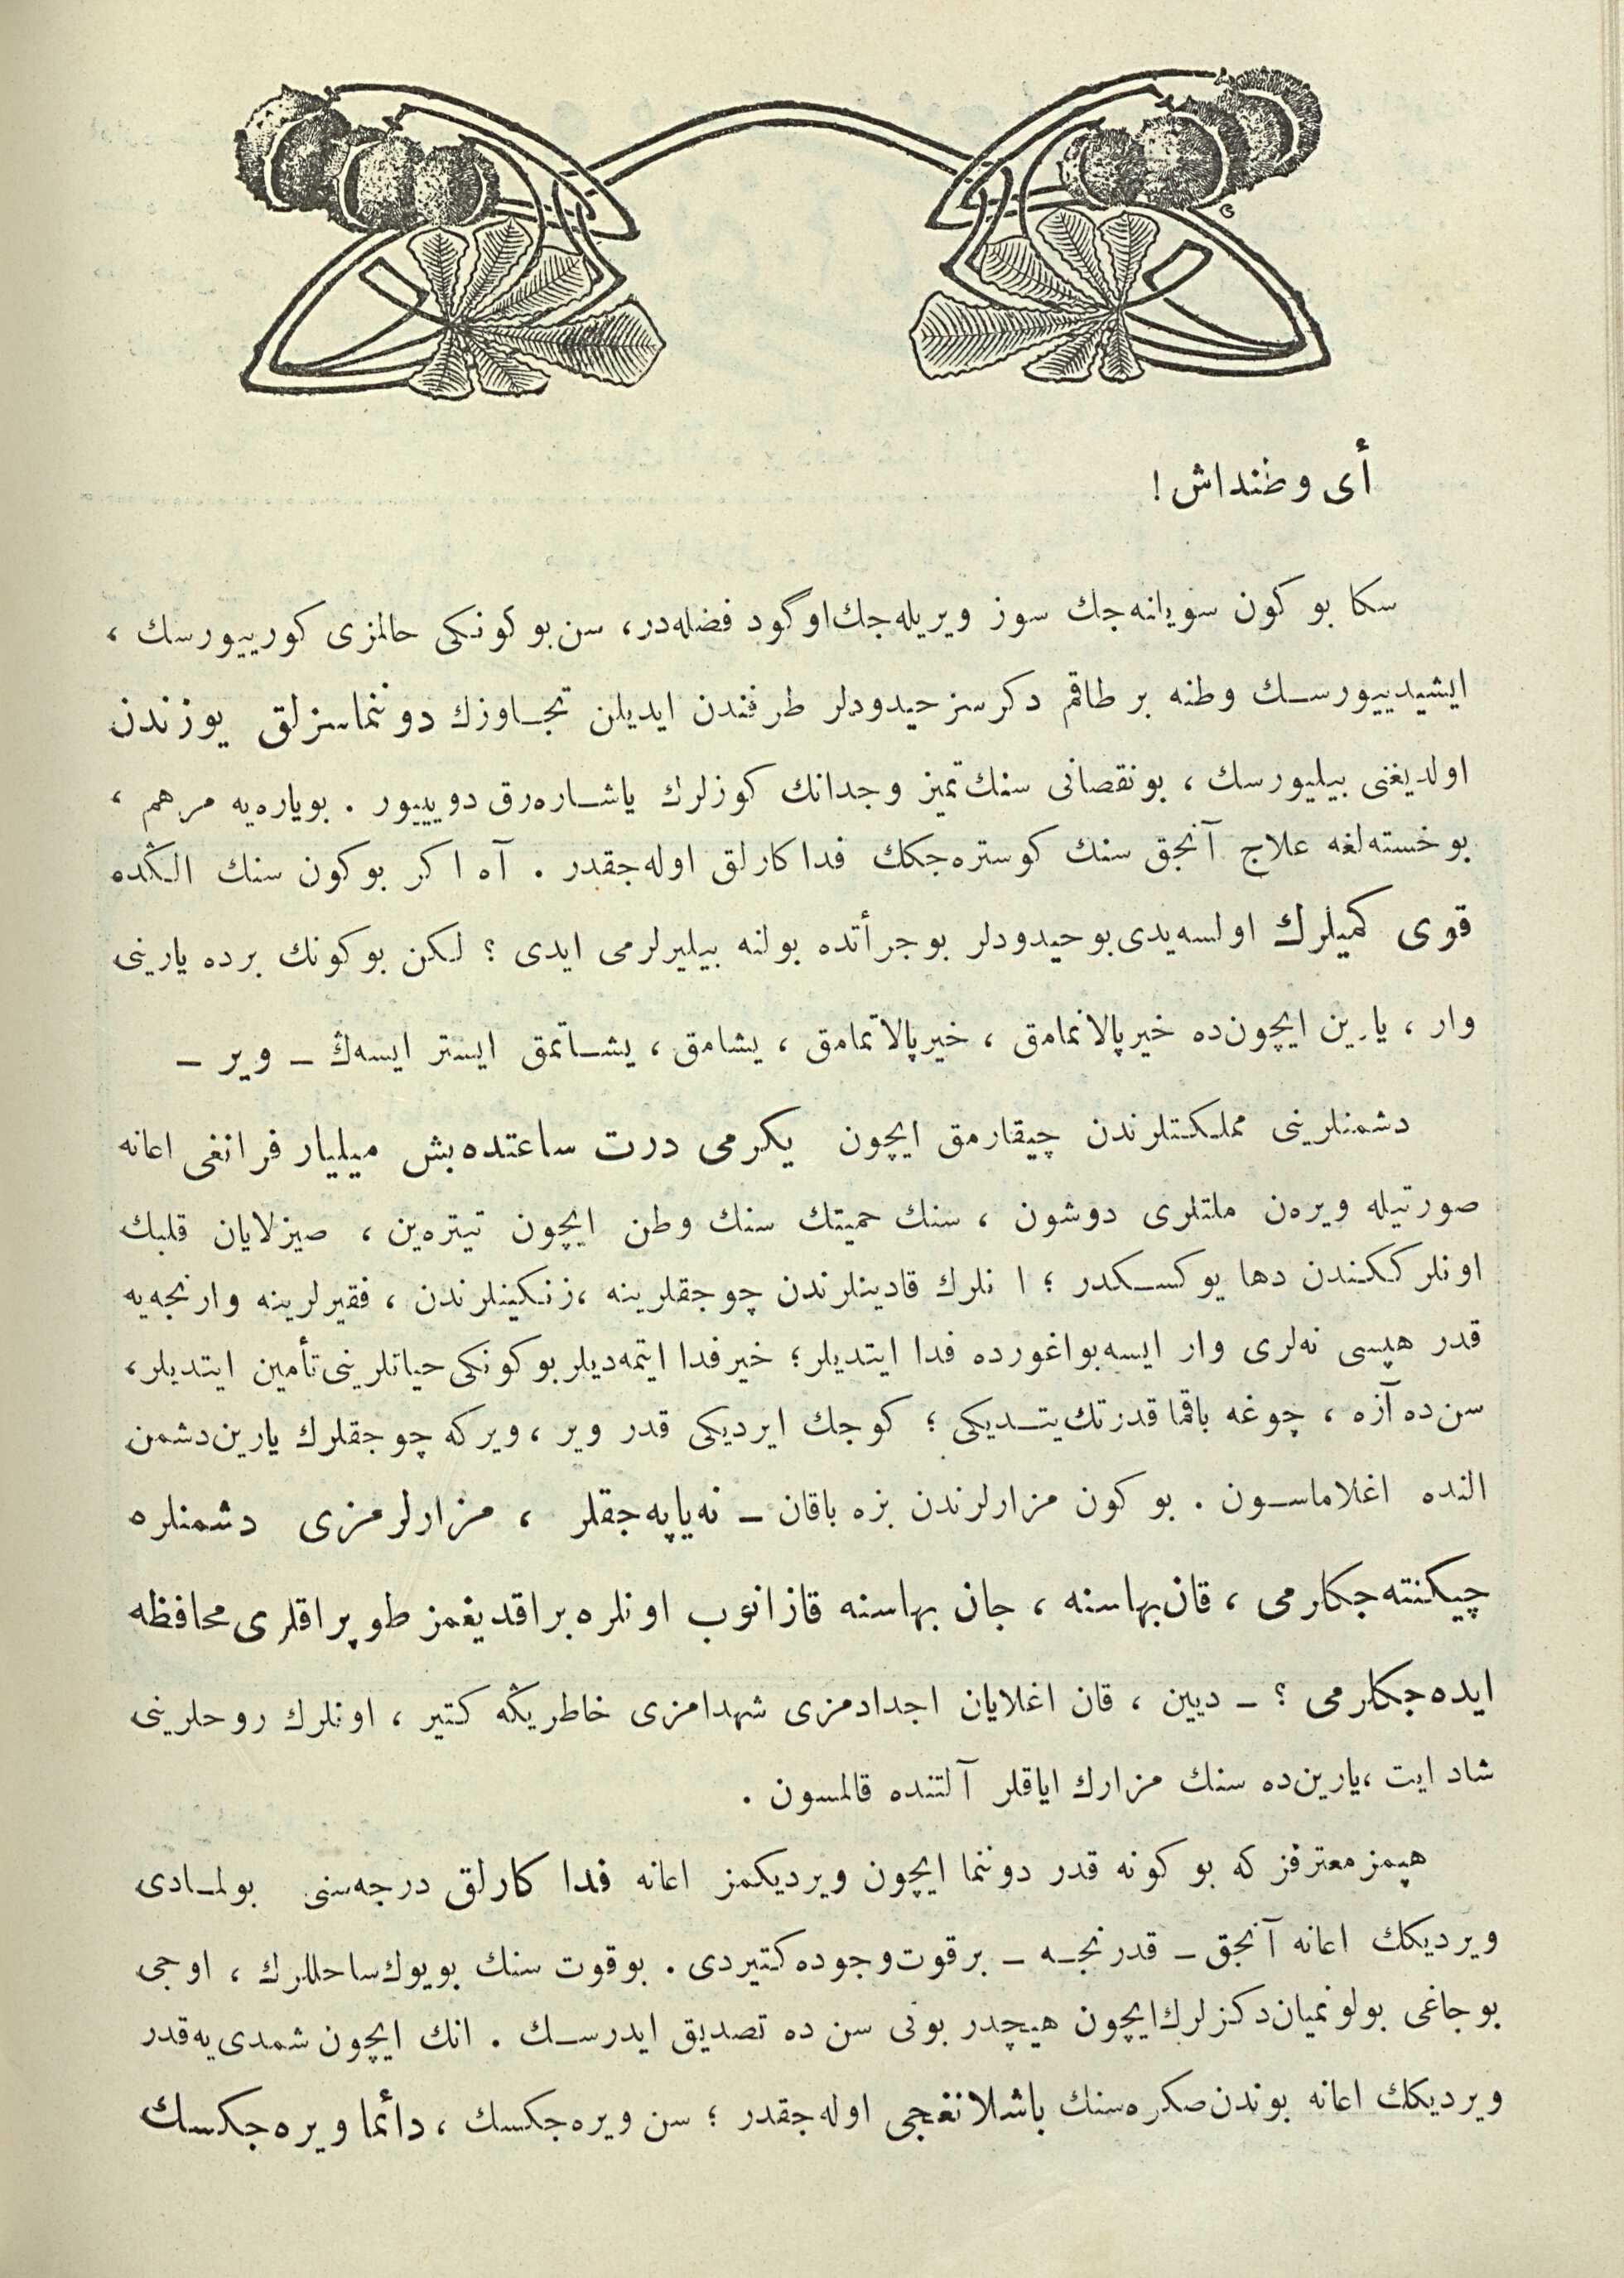 أى وطنداش !
سكا بو كون سويلنه‌جك سوز ويريله‌جك اوگود فضله‌در، سن بو كونكى حالمزى كورييورسك ،
ايشيدييورسك وطنه بر طاقم دكرسز حيدودلر طرفندن ايديلن تجاوزك دوننماسزلق يوزندن
اولديغنى بيليورسك ، بونقصانى سنك تميز وجدانك كوزلرك ياشاره‌رق دوييیور . بوياره‌يه مرهم ،
بوخسته‌لغه علاج آنجق سنك كوستره‌جكك فداكارلق اوله‌جقدر . آه اكر بوكون سنك الكده
قوى كميلرك اولسه‌يدى بوحيدودلر بوجرأتده بولنه بيليرلرمى ايدى ؟ لكن بوكونك برده يارينى
وار ، يارين ايچون‌ده خيرپالانمامق ، خيرپالاتمامق ، يشامق ، يشاتمق ايستر ايسه‌ڭ ـ وير ـ
دشمنلرينى مملكتلرندن چيقارمق ايچون يكرمى درت ساعتده بش ميليار فرانغى اعانه
صورتيله ويره‌ن ملتلرى دوشون ، سنك حميتك سنك وطن ايچون تيتره‌ين ، صيزلايان قلبك
اونلركندن دها يوكسكدر ؛ انلرك قادينلرندن چوجقلرينه ،زنكينلرندن ، فقيرلرينه وارنجه‌يه
قدر هپسى نه‌لرى وار ايسه بواغورده فدا ايتديلر؛ خيرفدا ايتمه‌ديلر بوكونكى حياتلرينى تأمين ايتديلر،
سن‌ده آزه ، چوغه باقما قدرتك يتديكى ؛ كوجك ايرديكى قدر وير ، ويركه چوجقلرك يارين دشمن
النده اغلاماسون . بو كون مزارلرندن بزه باقان ـ نه‌ياپه‌جقلر ، مزارلرمزى دشمنلره
چيكنته‌جكلرمى ، قان بهاسنه ، جان بهاسنه قازانوب اونلره براقديغمز طوپراقلرى محافظه
ايده‌جكلرمى ؟ ـ ديين ، قان اغلايان اجدادمزى شهدامزى خاطريڭه كتير ، اونلرك روحلرينى
شاد ايت ،يارين‌ده سنك مزارك اياقلر آلتنده قالمسون .
هپمز معترفز كه بو كونه قدر دوننما ايچون ويرديكمز اعانه فداكارلق درجه‌سنى بولمادى
ويرديكك اعانه آنجق ـ قدرنجه ـ برقوت وجوده كتيردى . بوقوت سنك بويوك ساحللرك ، اوجى
بوجاغى بولونميان دكزلرك ايچون هيچدر بونى سن ده تصديق ايدرسك . انك ايچون شمدى‌يه‌قدر
ويرديكك اعانه بوندن صكره سنك باشلانغجى اوله‌جقدر ؛ سن ويره‌جكسك ، دائما ويره‌جكسك